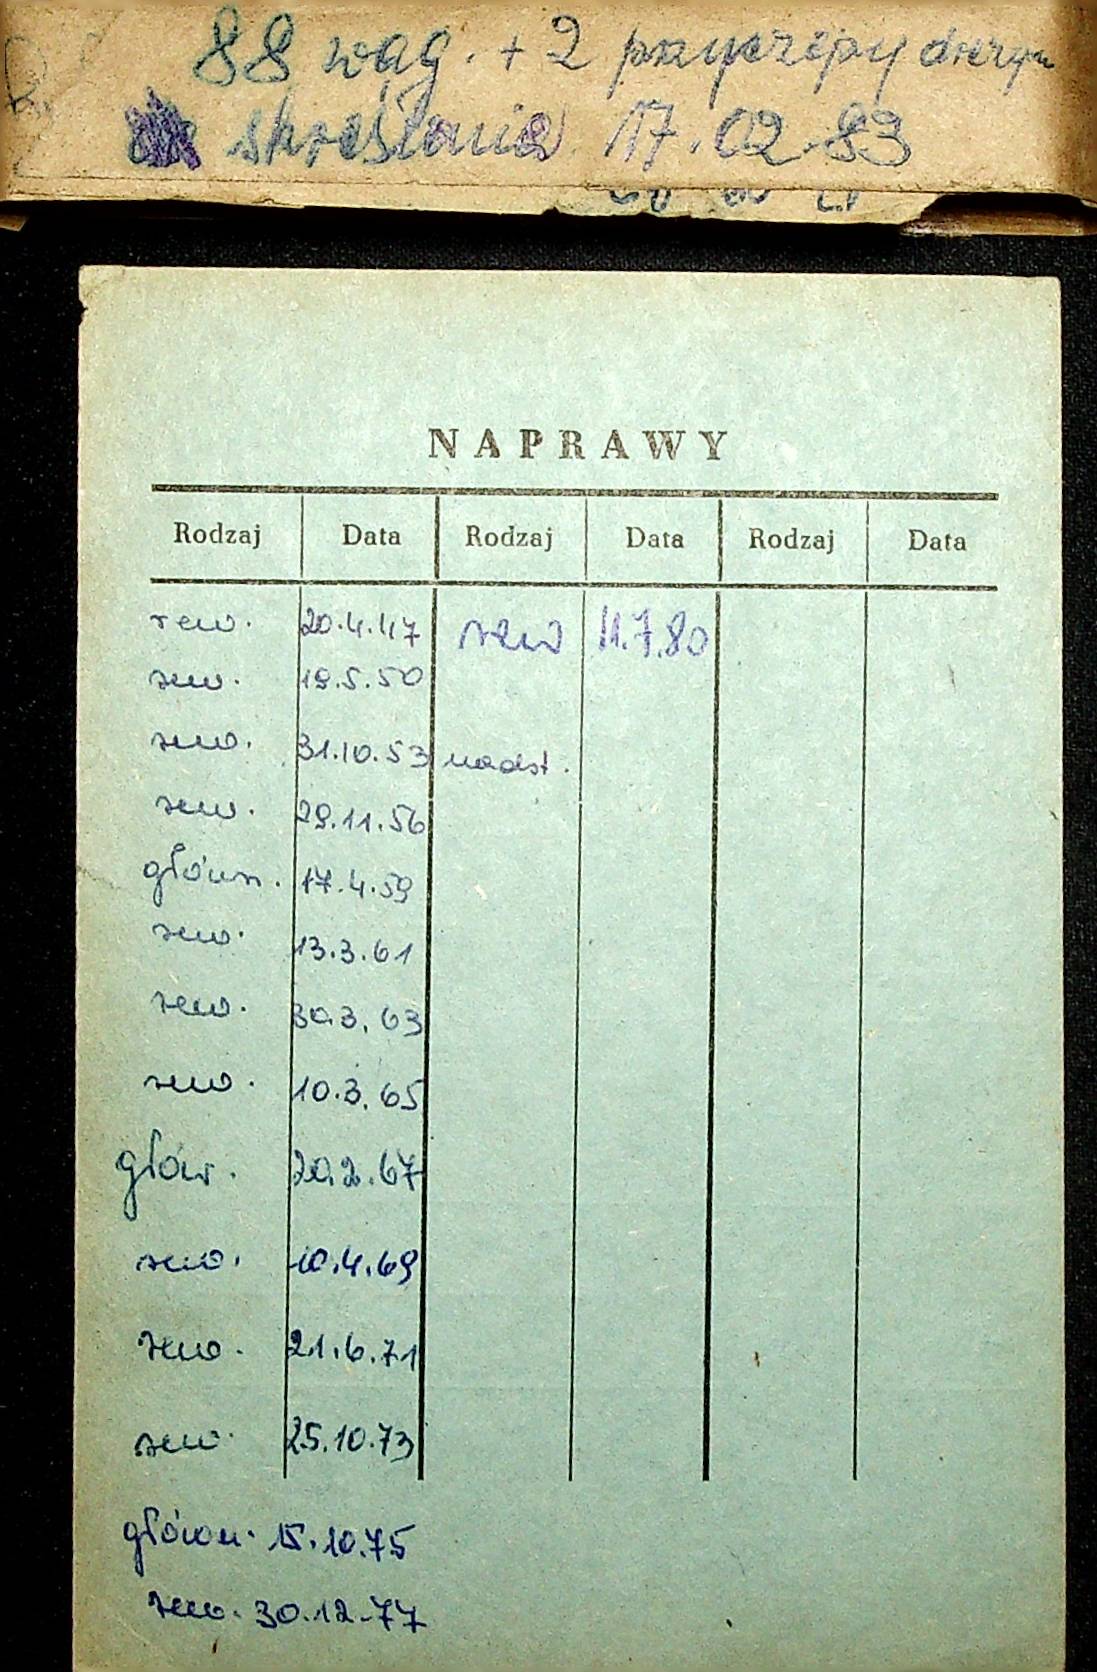 88 wag. + 2 przyczepy drezyn
skreślania 17.02.83
NAPRAWY
Rodzaj Data Rodzaj Data Rodzaj Data
rew. 20.4.47 rew 11.7.80
rew. 19.5.50
rew. 31.10.53 nadst.
rew. 29.11.56
główn. 17.4.59
rew. 13.3.61
rew. 30.3.63
rew. 10.3.65
głów. 20.2.67
rew. 10.4.69
rew. 21.6.71
rew. 25.10.73
główn. 15.10.75
rew. 30.12.77